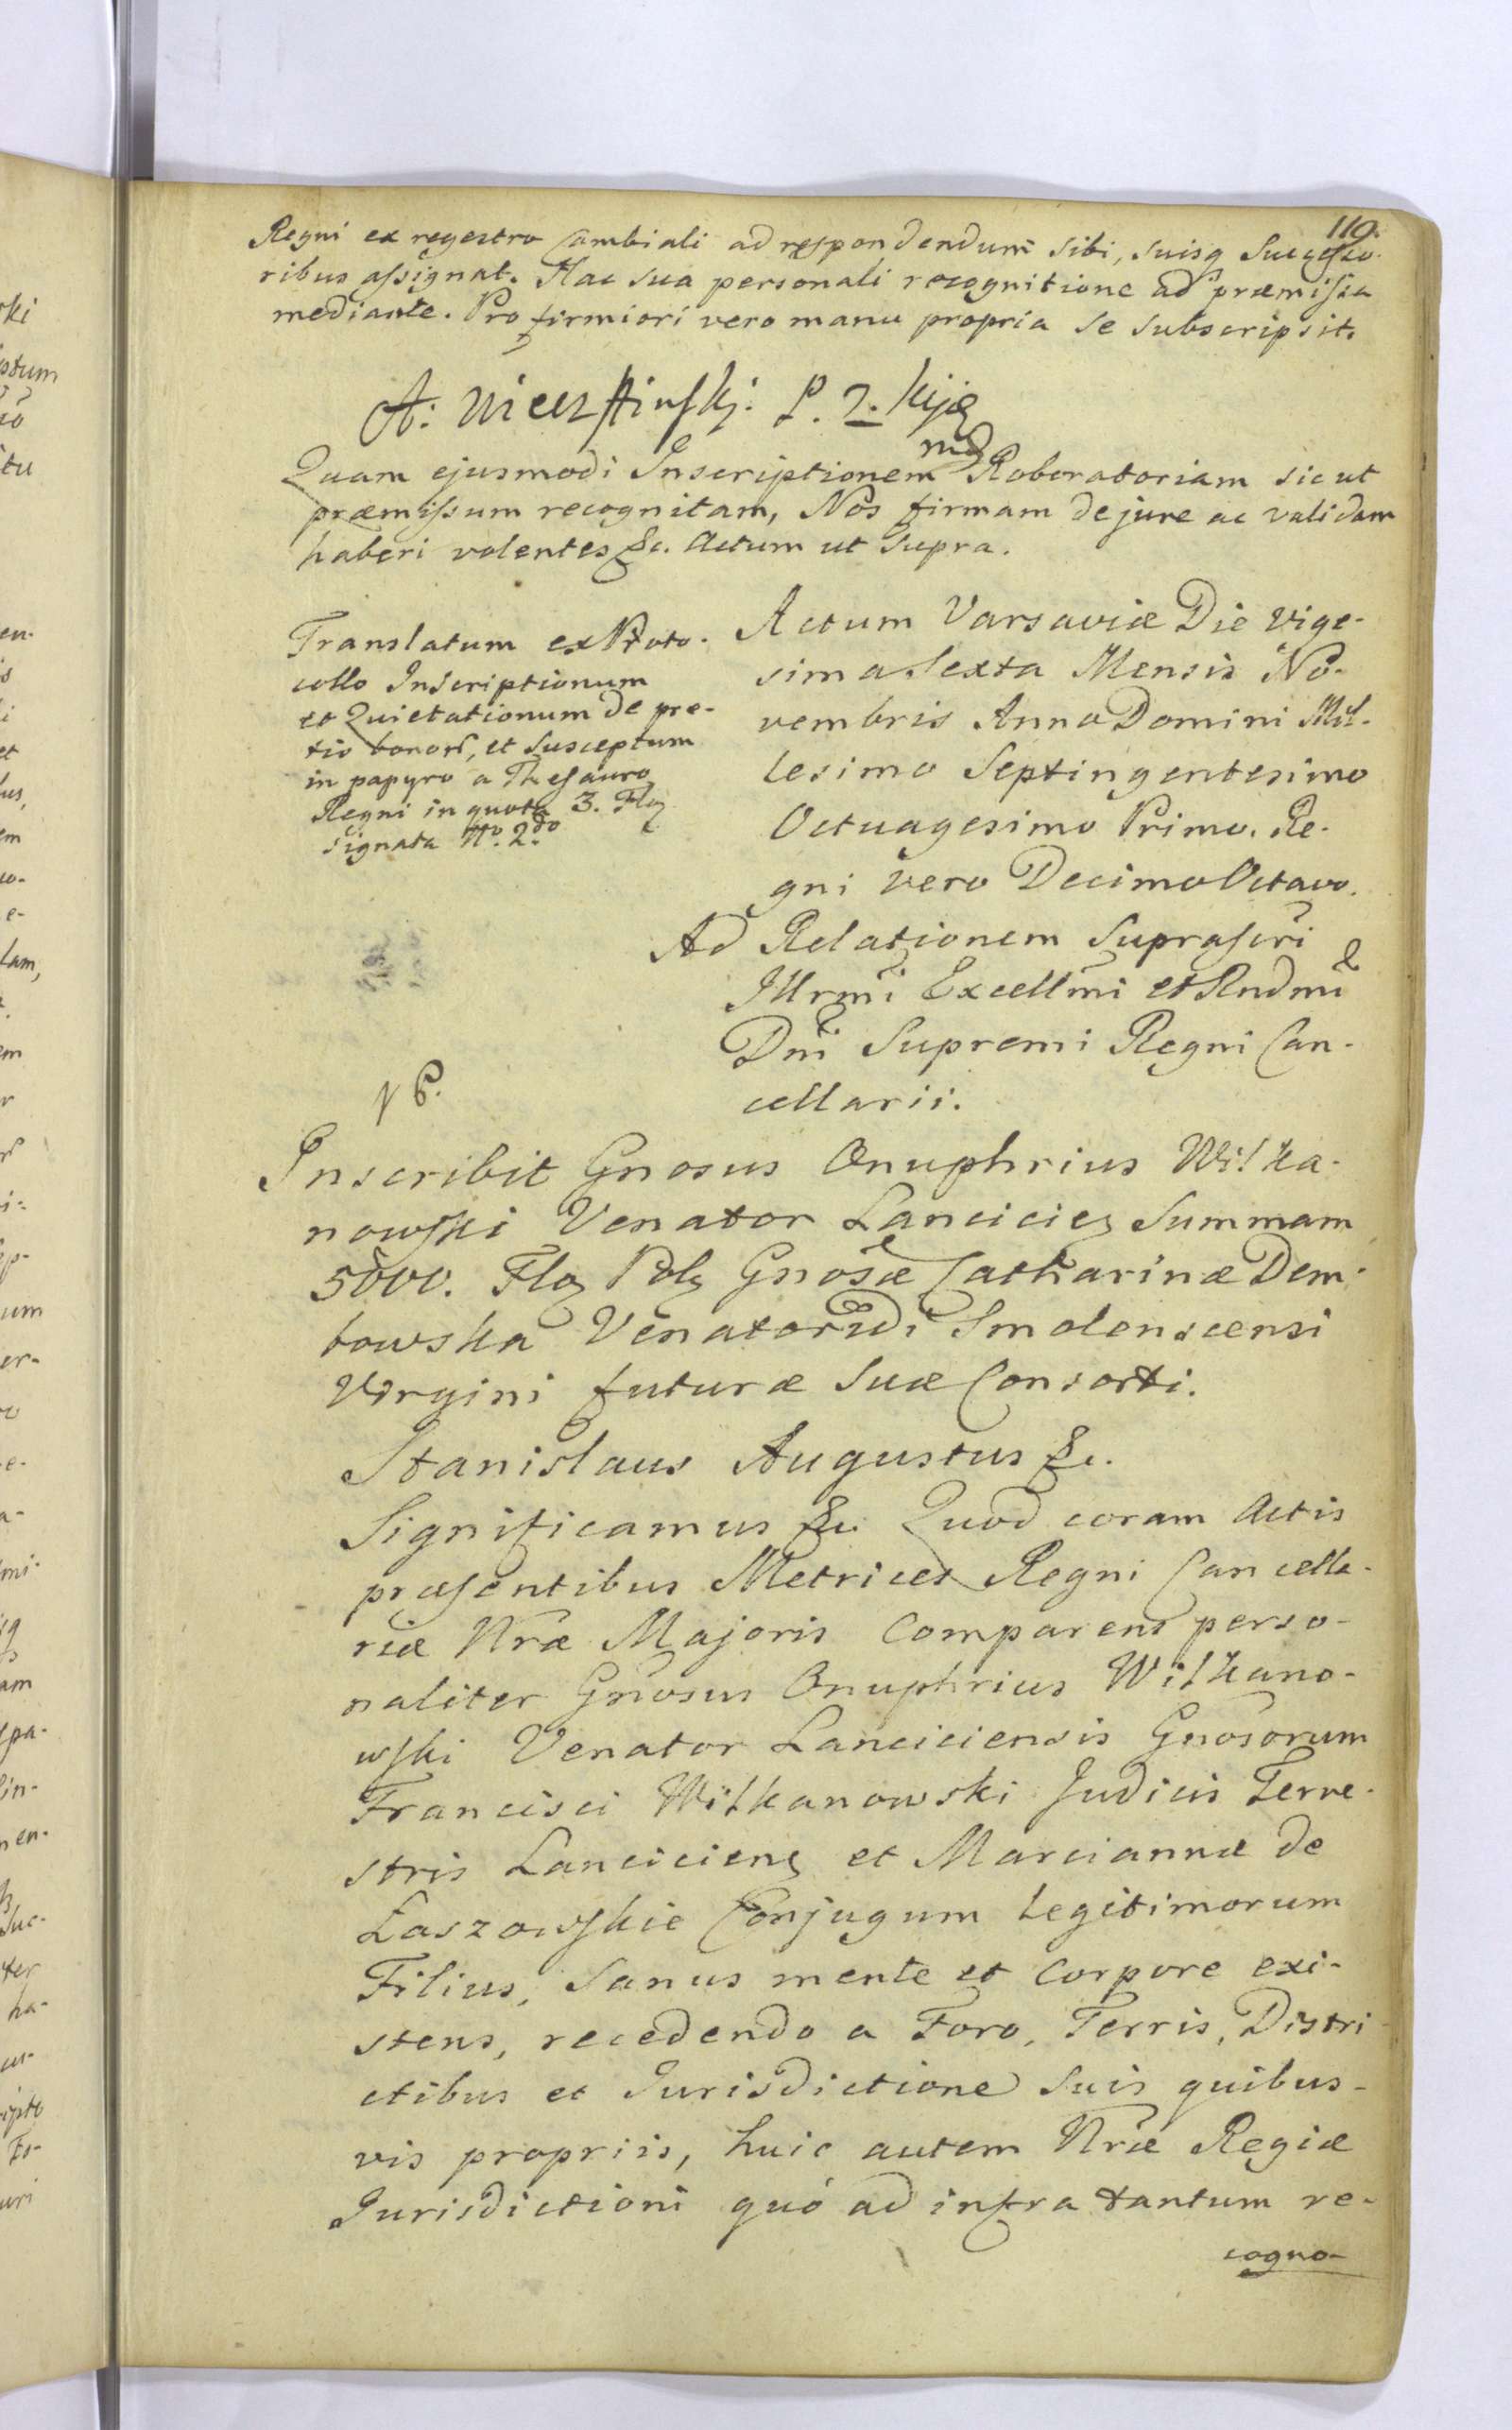 119.
Regni ex regestro Cambiali ad respondendum sibi, suisq Successo-
ribus assignat. Hac sua personali recognitione ad præmissa
mediante. Pro firmiori vero manu propria se subscripsit.
A:
Quam ejusmodi Inscriptionem Roboratoriam sic ut
præmissum recognitam, Nos firmam de jure ac validam
haberi volentes &c. Actum ut supra.
Translatum ex Proto-
collo Inscriptionum
et Quietationum de pre-
tio bonor, et susceptum
in papyro a Thesauro
Regni in quota 3. Flo
signata No. 2do
Actum Varsaviæ Die vige-
sima Sexta Mensis No-
vembris Anno Domini Mil-
lesimo Septingentesimo
Octuagesimo Primo. Re-
gni vero Decimo Octavo.
Ad Relationem Suprascri
Illrmi Excellmi et Rndmi
Dni Supremi Regni Can-
cellarii.
Inscribit Gnosus Onuphrius Witka-
nowski Venator Lanciciez Summam
5000. Flo Pol Gnosæ Catharinæ Dem-
bowska Venatoridi Smolenscensi
Virgini futuræ suæ Consorti.
Stanislaus Augustus &c.
Significamus &c. Quod coram Actis
præsentibus Metrices Regni Cancella-
riæ Nræ Majoris Comparens perso-
naliter Gnosus Onuphrius Witkano-
wski Venator Lanciciensis Gnosorum
Francisci Witkanowski Judicis Terre-
stris Lancicienz et Marciannæ de
Łaszowskie Conjugum legitimorum
Filius, Sanus mente et Corpore exi-
stens, recedendo a Foro, Terris, Distri-
ctibus et Jurisdictione suis quibus-
vis propriis, huic autem Nræ Regiæ
Jurisdictioni quó ad infra tantum re-
cogno-